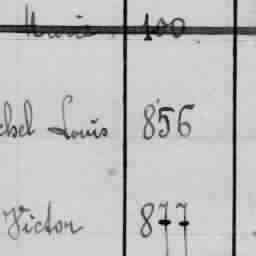 Marie 100
chel Louis 856
Victor 877